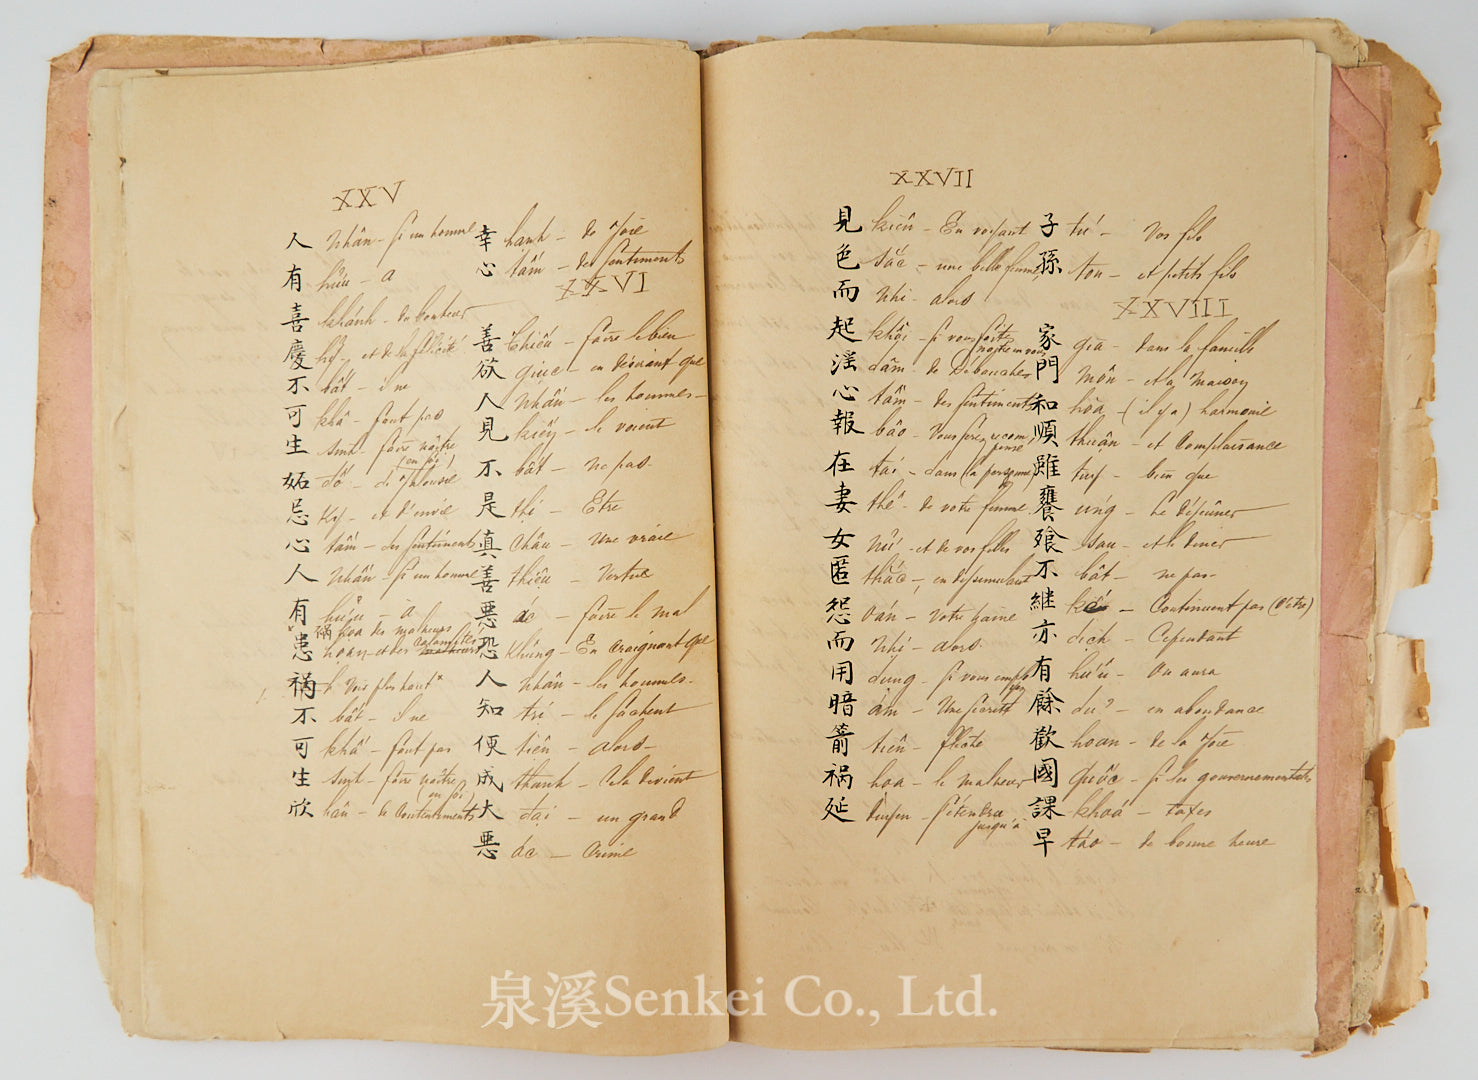 XXV
人 Nhân - Si un homme
有 hữu - a
喜 khánh - du bonheur
慶 hỷ - et de la félicité
不 bất - il ne
可 khả - faut pas
生 sinh - faire naître (en soi)
妬 đố - de jalousie
忌 Kỵ - et d'envie
心 tâm - des sentiments
人 Nhân - Si un homme
有 hữu - a
禍 hoa des malheurs
患 hoan - et des calamités
禍 Vois plus haut
不 bất - il ne
可 khả - faut pas
生 sinh - faire naître (en soi)
欣 hân - de contentements
幸 hanh - de joie
心 tâm - des sentiments
XXVI
善 Thiện - faire le bien
欲 giục - en désirant que
人 Nhân - les hommes -
見 kiến - le voient
不 bất - ne pas
是 thị - Etre
真 Chân - une vraie
善 thiện - Vertue
惡 ác - faire le mal
恐 Khủng - En craignant que
人 nhân - les hommes -
知 tri - le sachent
便 tiên - alors -
成 thanh - Cela devient
大 đại - un grand
惡 ác - Crime
XXVII
見 kiến - En voyant
色 sắc - une belle femme
而 Nhi - alors
起 khởi - Si vous faites naître en vous
淫 dâm - de débauches
心 tâm - des sentiments
報 báo - Vous serez récompensé
在 tai - dans la personne
妻 thê - de votre femme
女 Nữ - et de vos filles
匿 thắc - en dissimulant
怨 oán - votre haine
而 Nhi - alors
用 dụng - Si vous employez
暗 ám - Une secrète
箭 tiễn - flèche
禍 hoa - le malheur
延 duyên - s'étendra jusqu'à
子 tử - Vos fils
孫 ton - et petits fils
XXVIII
家 gia - dans la famille
門 Môn - et la maison
和 hòa - (il y a) harmonie
順 thuận - et Complaisance
雖 tuy - bien que
饔 ung - Le déjeûner
飧 san - et le diner
不 bất - ne pas -
継 - Continuent pas (d'être)
亦 dịch - Cependant
有 hữu - On aura
餘 dư - en abondance
歡 hoan - de la joie
國 quốc - Si les gouvernementales
課 khoá - taxes
早 tảo - de bonne heure
泉溪Senkei Co., Ltd.